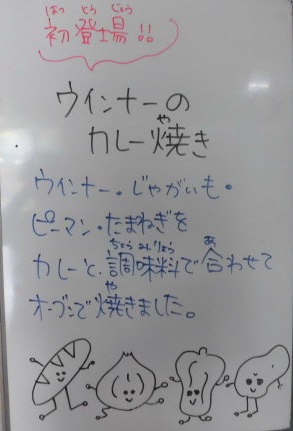 はつとうじょう
初登場!!
ウインナーの
や
カレー焼き
ウインナー。じゃがいも。
ピーマン・たまねぎを
ちょうみりょう あ
カレーと、調味料で合わせて
や
オーブンで焼きました。